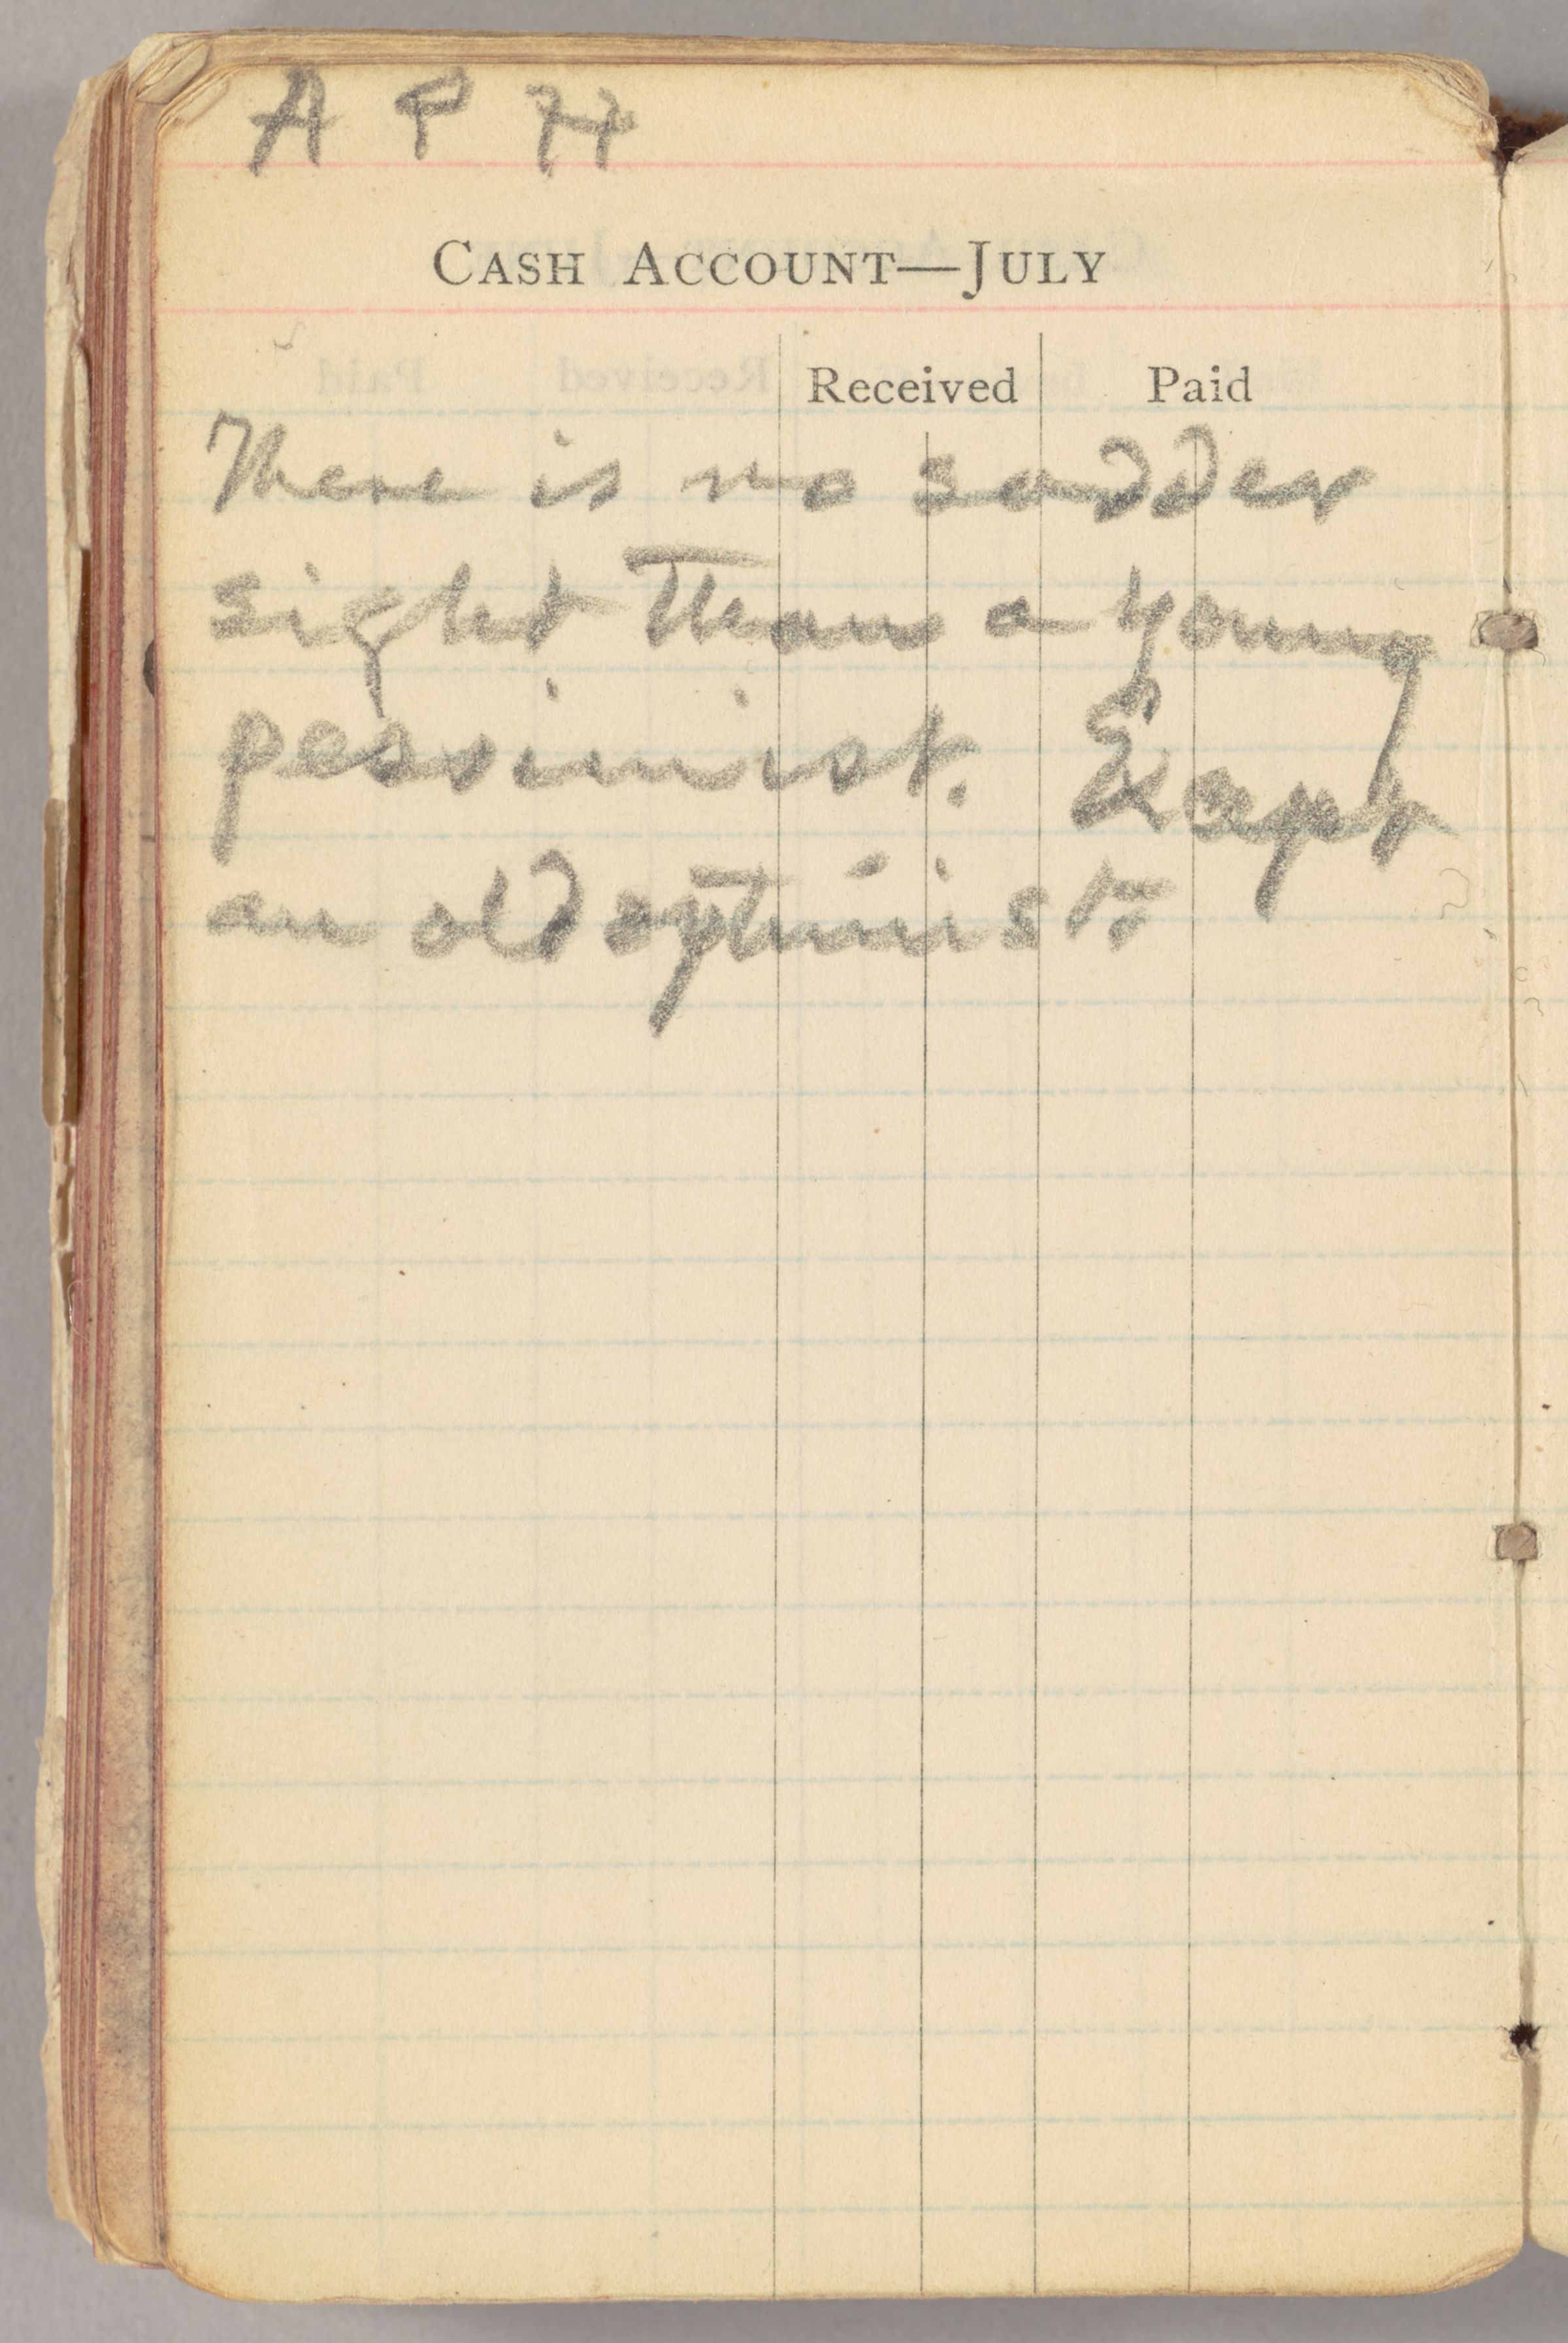 A P H
CASH ACCOUNT—JULY
Received Paid
There is no sadder
sight than a young
pessimist. Except
an old optimist.